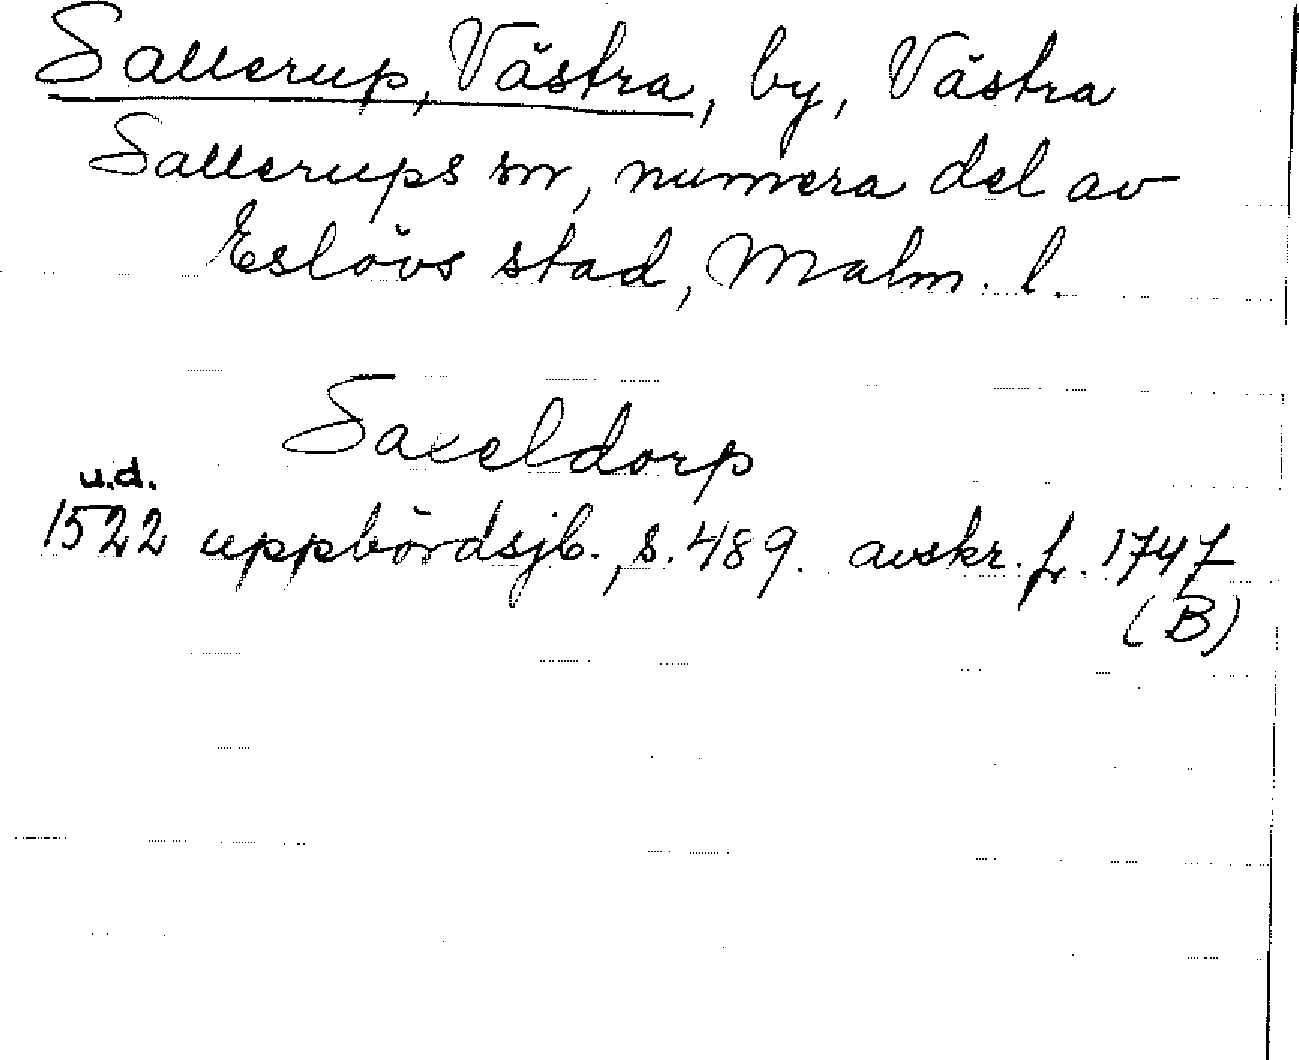 Sallerup, Västra, by, Västra
Sallerups sn, numera del av
Eslövs stad, Malm. l.
Saxeldorp
u.d.
1522 uppbördsjb., s. 489. avskr. fr. 1747
(B)